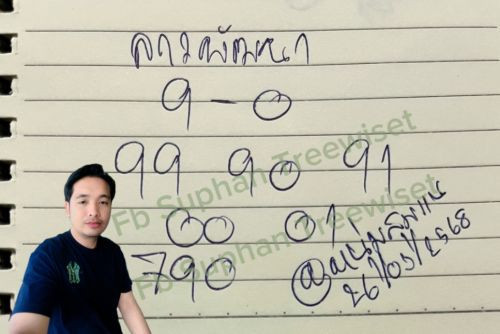 ลาวพัฒนา
9-0
99 90 91
00 01
790
@หนุ่มสุพรรณ
26/05/2568
Fb Suphan Treewiset
Fb Suphan Treewiset